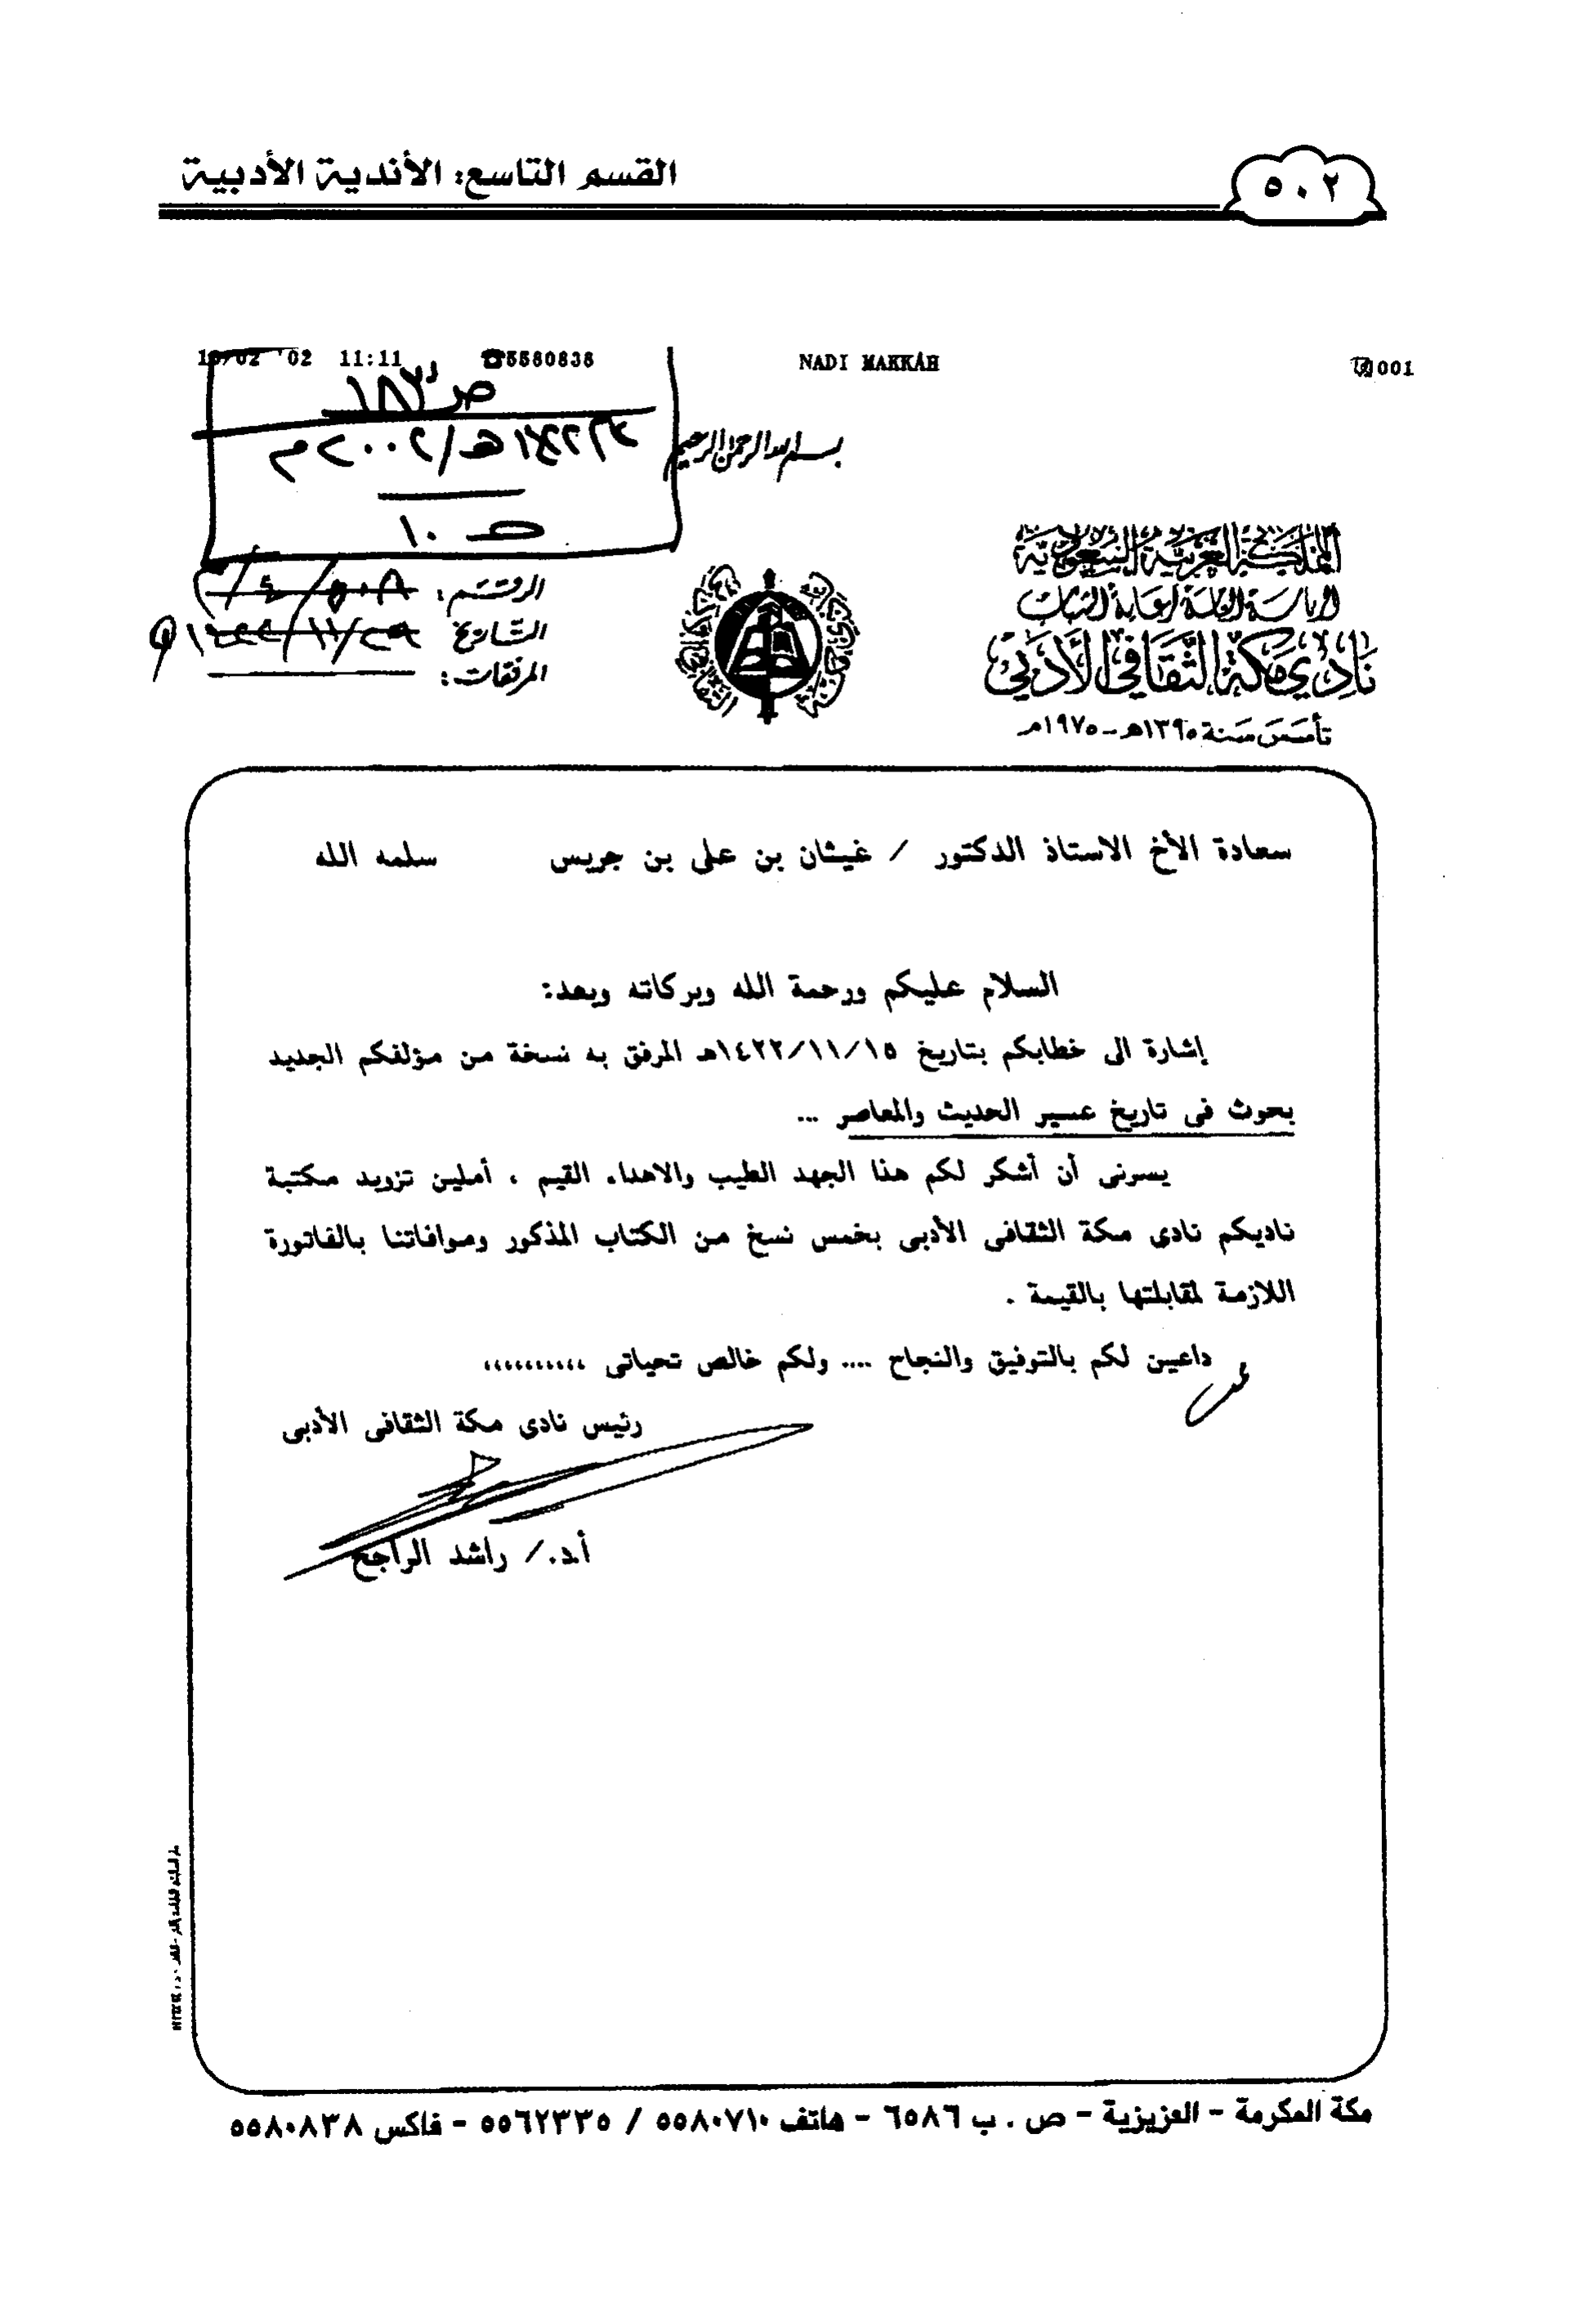 القسم التاسع: الأندية الأدبية
٥٠٢
'02 11:11 ☎5580838 NADI MAKKAH 001
بسم الله الرحمن الرحيم
هـ/٢٠٠٢م
١٠
المملكة العربية السعودية
الرئاسة العامة لرعاية الشباب
نادي مكة الثقافي الأدبي
تأسس سنة ١٣٩٥هـ - ١٩٧٥م
الرقم: ٥٠٨/٤/
التاريخ ٢٩/١١/١٤٢٢
المرفقات:
سعادة الأخ الاستاذ الدكتور / غيثان بن على بن جريس سلمه الله
السلام عليكم ورحمة الله وبركاته وبعد:
إشارة الى خطابكم بتاريخ ١٤٢٢/١١/١٥هـ المرفق به نسخة من مؤلفكم الجديد
بحوث فى تاريخ عسير الحديث والمعاصر ...
يسرنى أن أشكر لكم هذا الجهد الطيب والاهداء القيم ، أملين تزويد مكتبة
ناديكم نادى مكة الثقافى الأدبى بخمس نسخ من الكتاب المذكور وموافاتنا بالفاتورة
اللازمة لمقابلتها بالقيمة .
داعين لكم بالتوفيق والنجاح .... ولكم خالص تحياتى ،،،،،،،،،،
رئيس نادى مكة الثقافى الأدبى
أ.د./ راشد الراجح
مكة المكرمة - العزيزية - ص . ب ٦٥٨٦ - هاتف ٥٥٨٠٧١٠ / ٥٥٦٢٣٣٥ - فاكس ٥٥٨٠٨٣٨